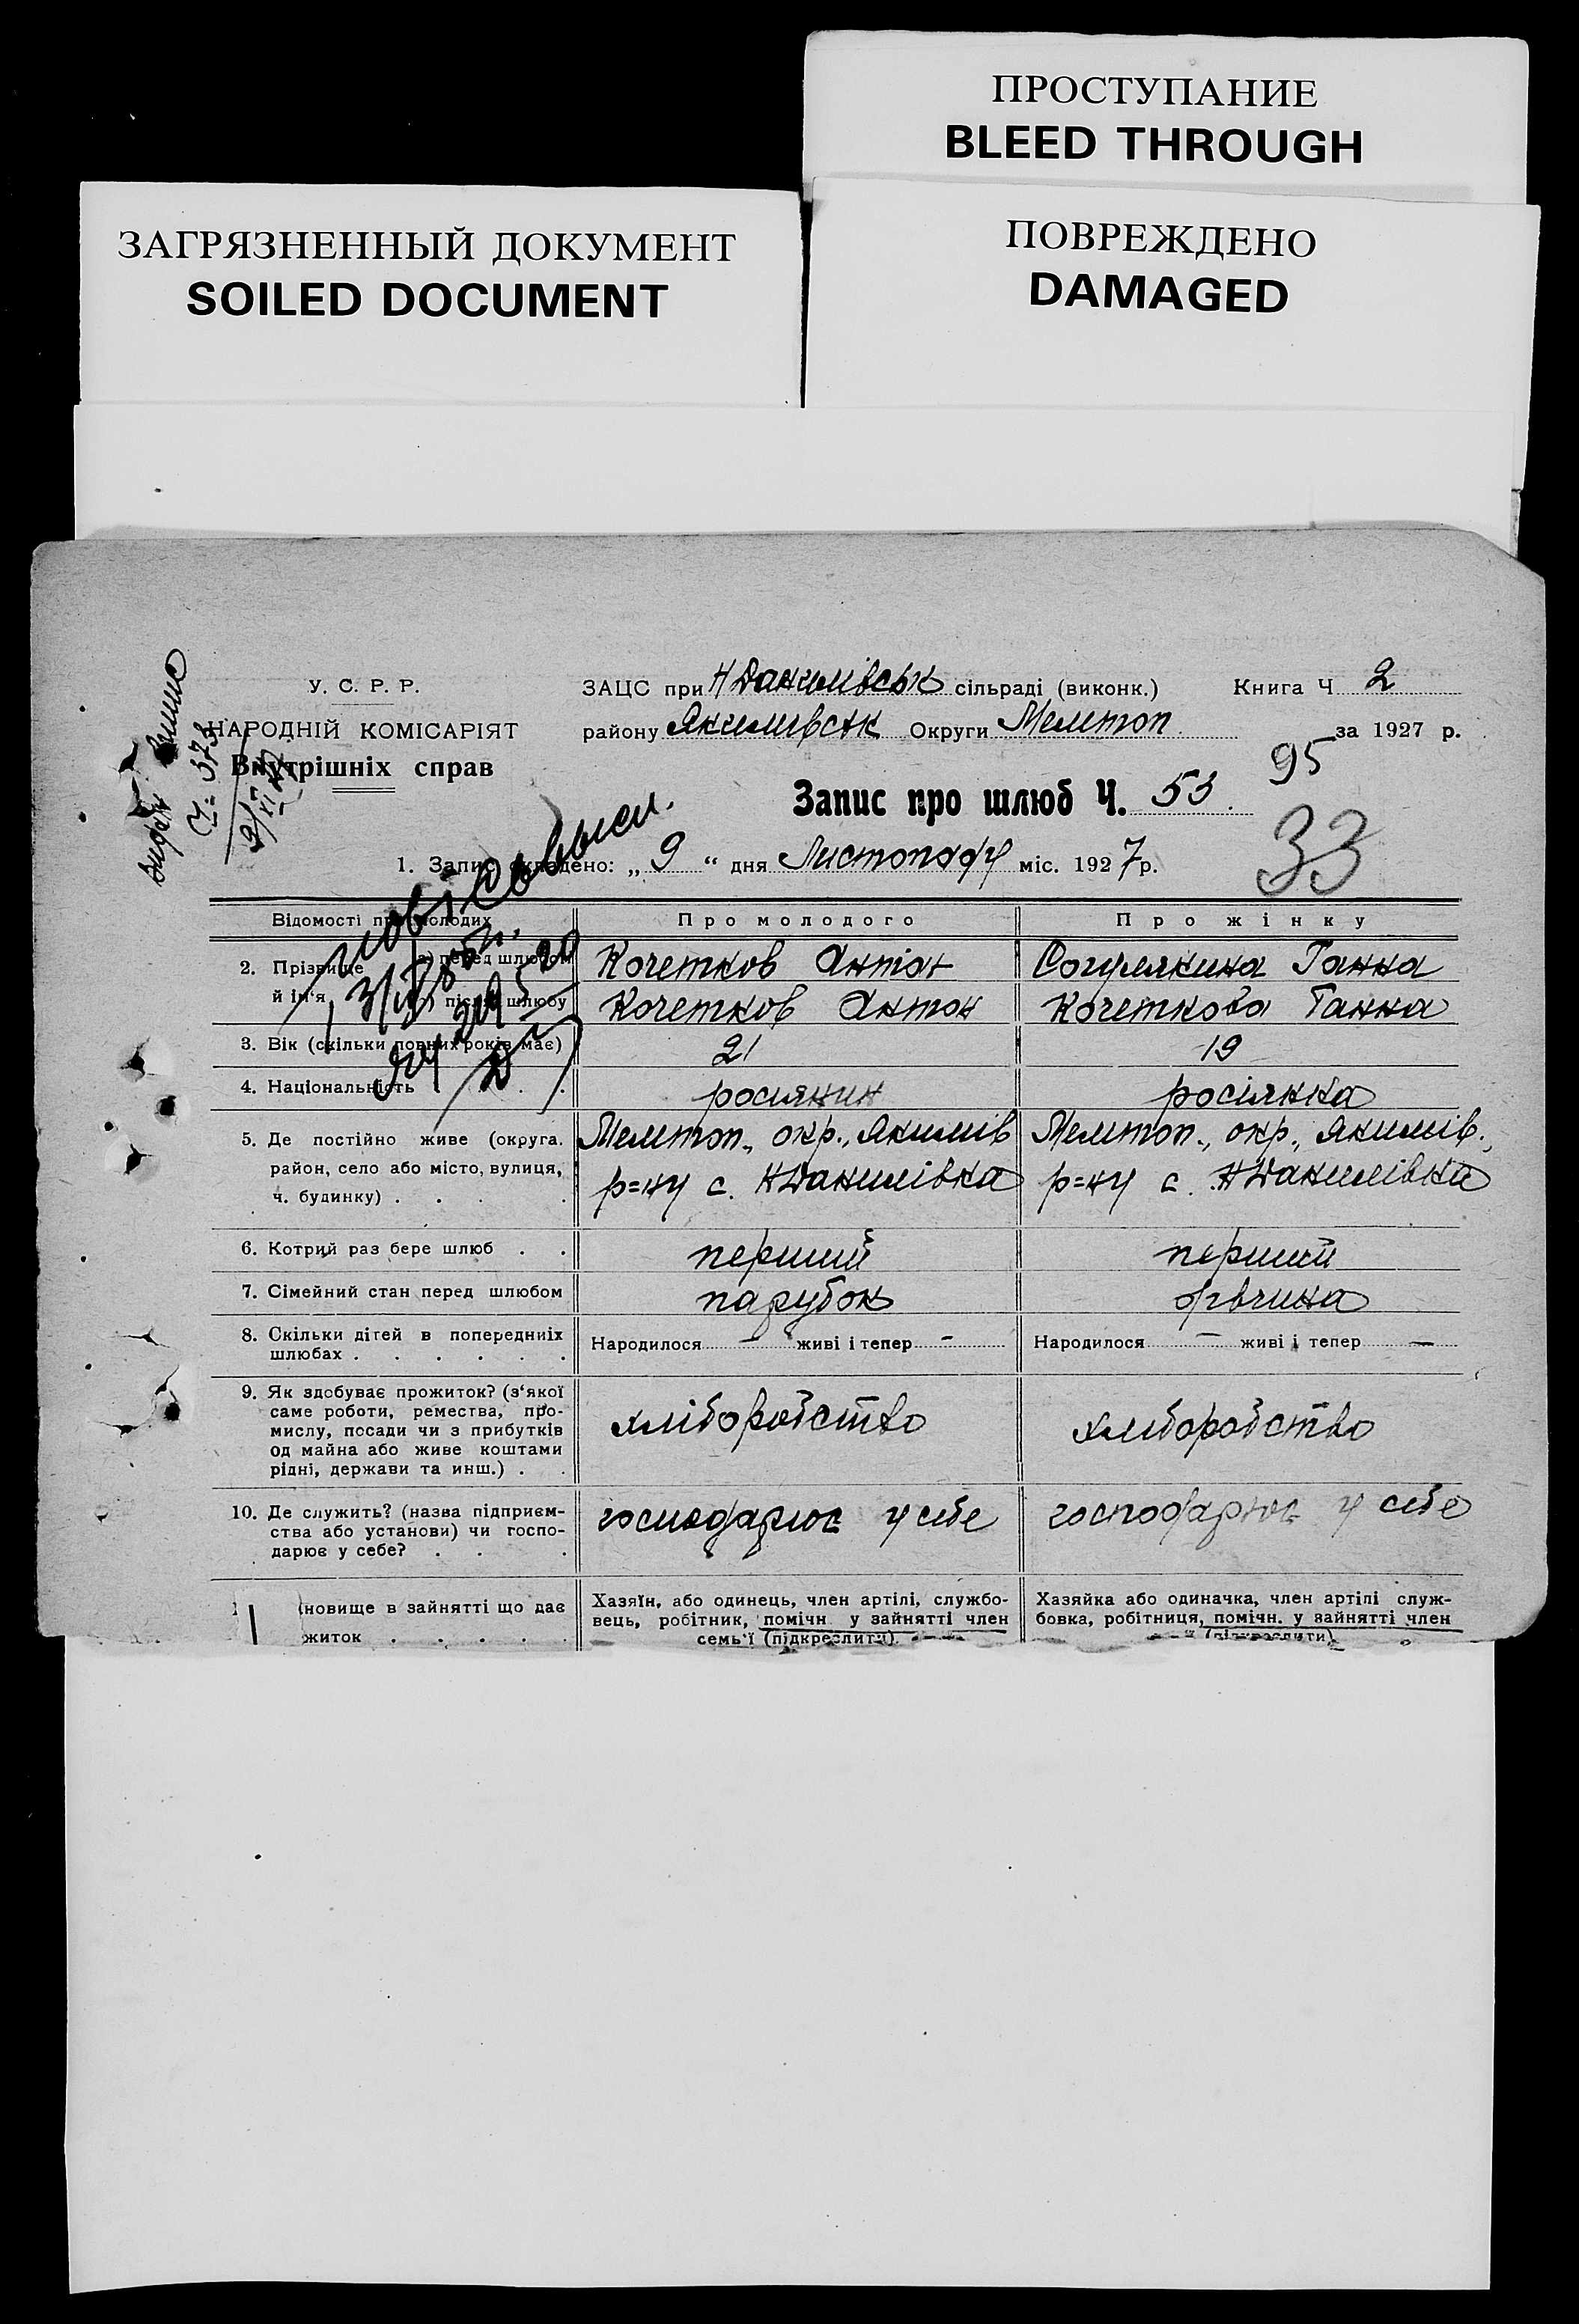 ПРОСТУПАНИЕ
BLEED THROUGH
ЗАГРЯЗНЕННЫЙ ДОКУМЕНТ
SOILED DOCUMENT
ПОВРЕЖДЕНО
DAMAGED
У. С. Р. Р.
НАРОДНІЙ КОМІСАРІЯТ
Внутрішніх справ
ЗАЦС при Н Данилівськ сільраді (виконк.) Книга Ч 2
району Якимівськ Округи Мелітоп за 1927 р.
95
Запис про шлюб Ч. 53
33
1. Запис складено: „ 9 “ дня Листопаду міс. 1927 р.
Відомості про молодих
Про молодого
Про жінку
2. Прізвище й ім'я
а) перед шлюбом
Кочетков Антон
Ганна
після шлюбу
Кочетков Антон
Кочеткова Ганна
3. Вік (скільки повних років має)
21
19
4. Національність
росіянин
росіянка
5. Де постійно живе (округа, район, село або місто, вулиця, ч. будинку) . . . .
Мелітоп., окр., Якимів
р=ну с. Н Данилівка
Мелітоп., окр., Якимів.,
р=ну с. Н Данилівка
6. Котрий раз бере шлюб . .
перший
перший
7. Сімейний стан перед шлюбом
парубок
дівчина
8. Скільки дітей в попередниіх шлюбах . . . . . .
Народилося — живі і тепер -
Народилося — живі і тепер —
9. Як здобуває прожиток? (з'якої
саме роботи, ремества, про-
мислу, посади чи з прибутків
од майна або живе коштами
рідні, держави та инш.) . .
хліборобство
хліборобство
10. Де служить? (назва підприєм-
ства або установи) чи госпо-
дарює у себе? . . .
господарює у себе
господарює у себе
новище в зайнятті що дає
житок . . . . .
Хазяїн, або одинець, член артілі, службо-
вець, робітник, помічн у зайнятті член
семь'ї (підкреслити).
Хазяйка або одиначка, член артілі служ-
бовка, робітниця, помічн. у зайнятті член
(підкреслити)